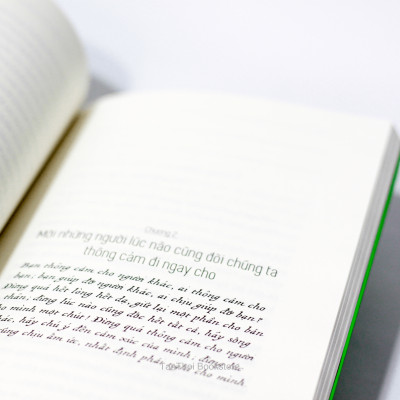 Chương 2
Mời những người lúc nào cũng đòi chúng ta
thông cảm đi ngay cho
Bạn thông cảm cho người khác, ai thông cảm cho
bạn; bạn giúp đỡ người khác, ai chịu giúp đỡ bạn?
Đừng quá hết lòng hết dạ, giữ lại một phần cho bản
thân, đừng lúc nào cũng dốc hết tất cả, hãy sống
cho mình một chút! Đừng quá thông cảm cho người
khác, hãy chú ý đến cảm xúc của mình, đừng
cũng chịu ấm ức, nhất định phải cho mình